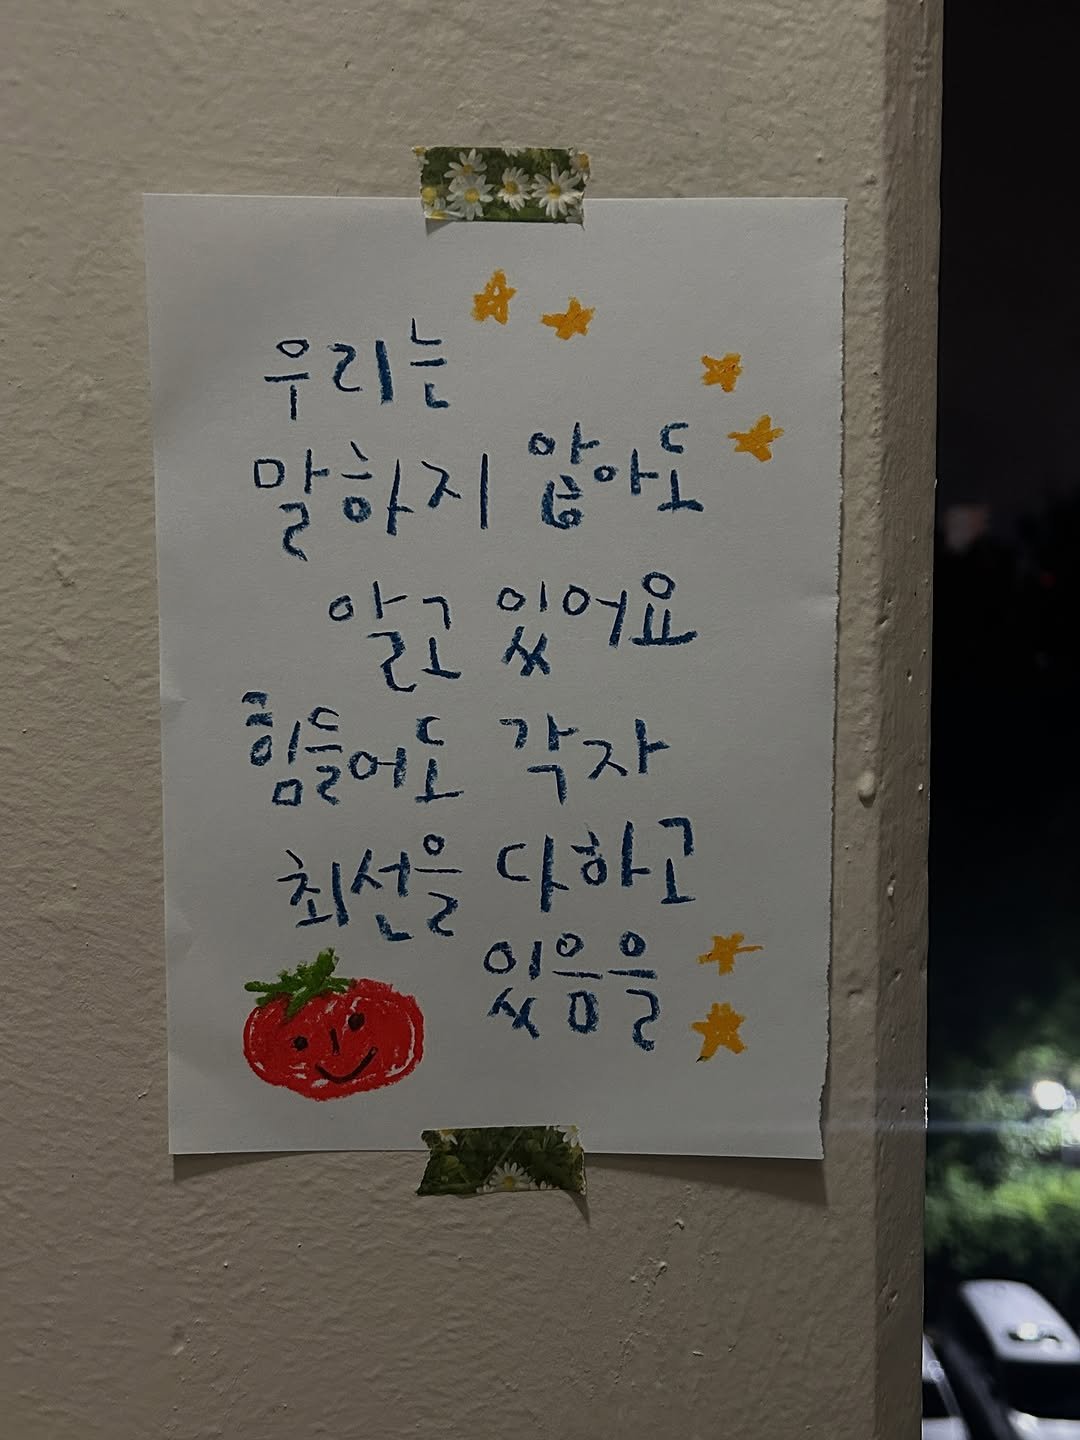 우리는
말하지 않아도
알고 있어요
힘들어도 각자
최선을 다하고
있음을